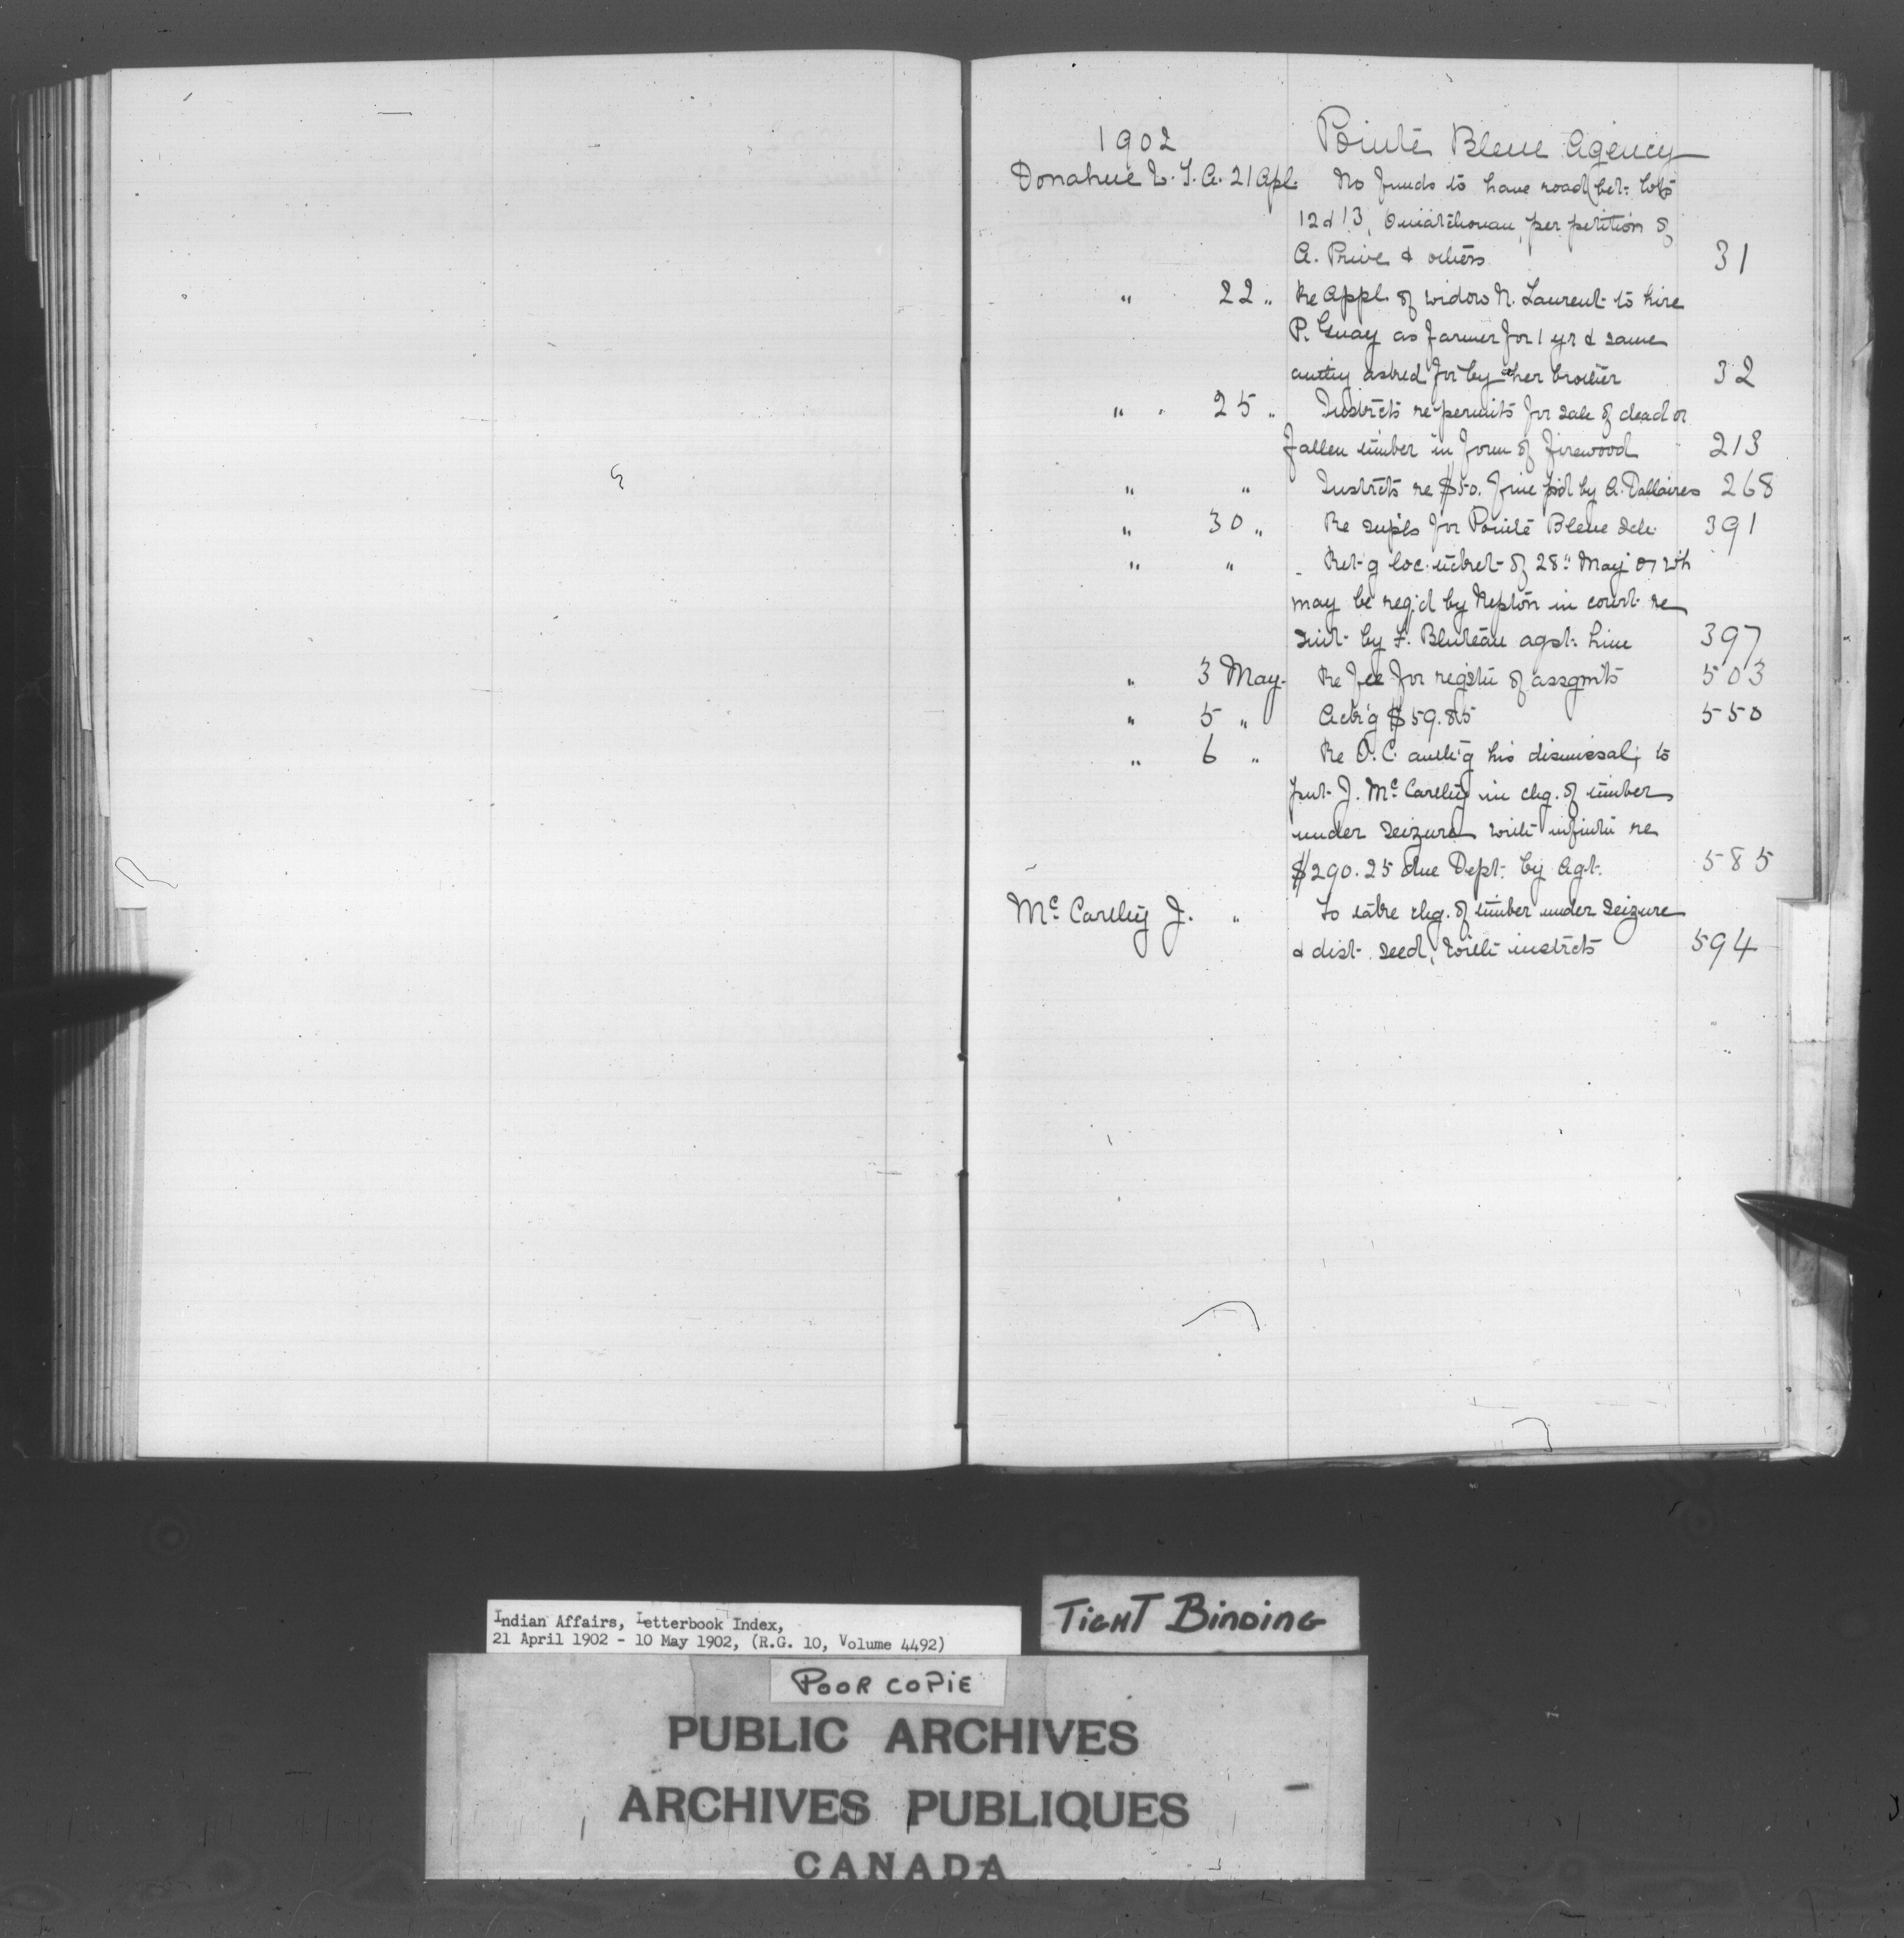 1902 Pointe Bleue Agency
Donahue L. T. A. 21 Apl. No funds to have road bet: lots
12 & 13, Ouiatchouan, per petition of
A. Prive & others 31
" 22 " Re appl. of widow N. Laurent to hire
P. Guay as farmer for 1 yr & same
authy asked for by her brother 32
" " 25 " Instrcts re permits for sale of dead or
fallen timber in form of firewood 213
" " Instrcts re $50. fine p'd by A. Dallaires 268
" 30 " Re supls for Pointe Bleue Sch: 391
" " Ret'g loc. of 28" May 07 wh
may be req'd by Nepton in court re
suit by F. Bluteau agst: him 397
" 3 May. Re fee for registn of assgmts 503
" 5 " Ack'g $59.85 550
" 6 " Re O.C. auth'g his dismissal; to
put J. McCarthy in chg. of timber
under seizure with re
$290.25 due Dept: by Agt. 585
McCarthy J. " To take chg. of timber under seizure
& dist. seed, with instrcts 594
Indian Affairs, Letterbook Index,
21 April 1902 - 10 May 1902, (R.G. 10, Volume 4492)
TIGHT BINDING
POOR COPIE
PUBLIC ARCHIVES
ARCHIVES PUBLIQUES
CANADA